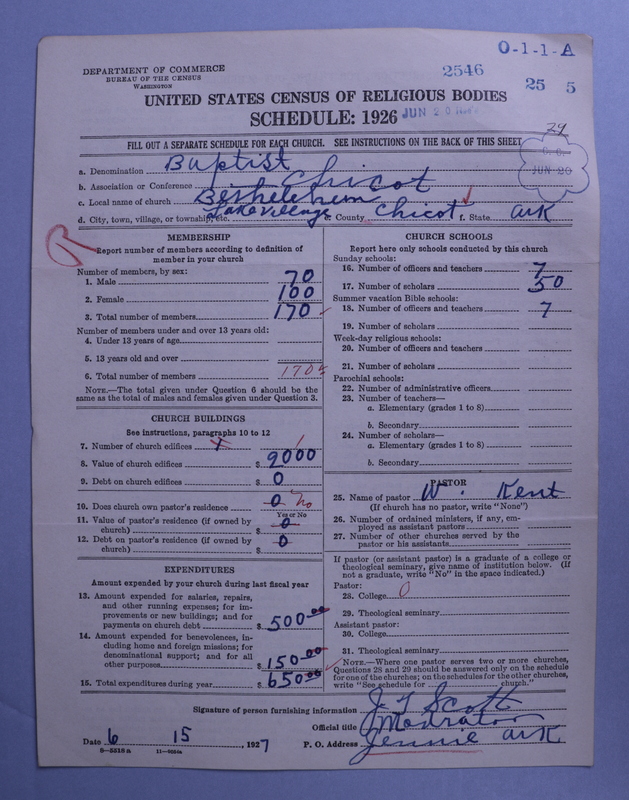 O-1-1-A
DEPARTMENT OF COMMERCE
BUREAU OF THE CENSUS
WASHINGTON
2546
25 5
UNITED STATES CENSUS OF RELIGIOUS BODIES
SCHEDULE: 1926
JUN 20
29
FILL OUT A SEPARATE SCHEDULE FOR EACH CHURCH. SEE INSTRUCTIONS ON THE BACK OF THIS SHEET
JUN 20
a. Denomination Baptist
b. Association or Conference Chicot
c. Local name of church Bethelehem
d. City, town, village, or township, etc. Lake Village e. County Chicot f. State Ark
MEMBERSHIP
Report number of members according to definition of
member in your church
Number of members, by sex:
1. Male 70
2. Female 100
3. Total number of members 170
Number of members under and over 13 years old:
4. Under 13 years of age
5. 13 years old and over
6. Total number of members 170
NOTE.—The total given under Question 6 should be the
same as the total of males and females given under Question 3.
CHURCH BUILDINGS
See instructions, paragraphs 10 to 12
7. Number of church edifices 1
8. Value of church edifices $ 2000
9. Debt on church edifices $ 0
10. Does church own pastor's residence 0 No
Yes or No
11. Value of pastor's residence (if owned by
church) $ 0
12. Debt on pastor's residence (if owned by
church) $ 0
EXPENDITURES
Amount expended by your church during last fiscal year
13. Amount expended for salaries, repairs,
and other running expenses; for im-
provements or new buildings; and for
payments on church debt $ 500.00
14. Amount expended for benevolences, in-
cluding home and foreign missions; for
denominational support; and for all
other purposes $ 150.00
15. Total expenditures during year $ 650.00
CHURCH SCHOOLS
Report here only schools conducted by this church
Sunday schools:
16. Number of officers and teachers 7
17. Number of scholars 50
Summer vacation Bible schools:
18. Number of officers and teachers 7
19. Number of scholars
Week-day religious schools:
20. Number of officers and teachers
21. Number of scholars
Parochial schools:
22. Number of administrative officers
23. Number of teachers—
a. Elementary (grades 1 to 8)
b. Secondary
24. Number of scholars—
a. Elementary (grades 1 to 8)
b. Secondary
PASTOR
25. Name of pastor W. Kent
(If church has no pastor, write "None")
26. Number of ordained ministers, if any, em-
ployed as assistant pastors
27. Number of other churches served by the
pastor or his assistants
If pastor (or assistant pastor) is a graduate of a college or
theological seminary, give name of institution below. (If
not a graduate, write "No" in the space indicated.)
Pastor:
28. College 0
29. Theological seminary
Assistant pastor:
30. College
31. Theological seminary
NOTE.—Where one pastor serves two or more churches,
Questions 28 and 29 should be answered only on the schedule
for one of the churches; on the schedules for the other churches,
write "See schedule for church."
Signature of person furnishing information J T Scott
Official title Modrator
Date 6 15, 1927 P. O. Address Jennie Ark
8-5518 a